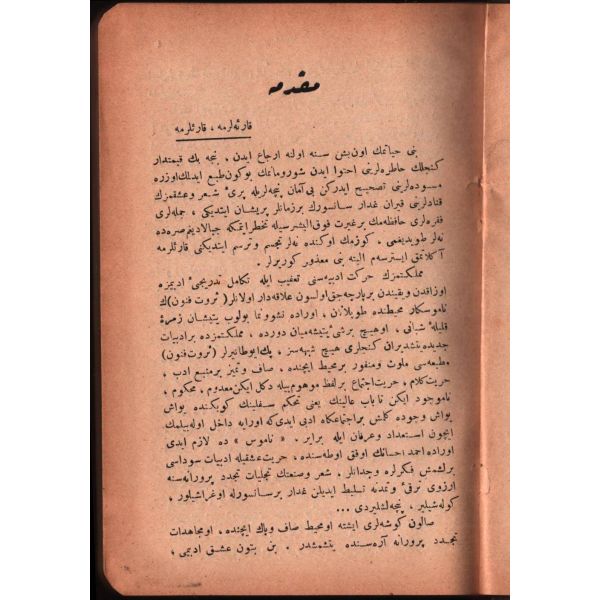 مقدمه
قارئه‌لرمه ، قارئلرمه
بنی حیاتمك اون‌بش سنه اولنه ارجاع ایدن ، نیجه پك قیمتدار
كنجلك خاطره‌لرینی احتوا ایدن شو رومانمك بوكون طبع ایدیلمك اوزره
مسوده‌لرینی تصحیح ایدركن بی‌آمان پنجه‌لریله پریٔ شعر و عشقمزك
قنادلرینی قیران غدار سانسورك بر زمانلر پریشان ایتدیكی ، جمله‌لری
فقره‌لری حافظه‌مك بر غیرت فوق‌البشرسیله تخطر ایتمكه چبالادیغم صره‌ده
نه‌لر طویدیغمی ، كوزمك اوكنده نه‌لر تجسم و ترسم ایتدیكنی قارئلرمه
آكلاتمق ایسترسه‌م البته بنی معذور كوررلر .
مملكتمزك حركت ادبیه‌سنی تعقیب ایله تكامل تدریجیٔ ادبیمزه
اوزاقدن ویقیندن بر پارچه‌جق اولسون علاقه‌دار اولانلر ( ثروت فنون ) ك
ناموسكار محیطنده طوپلانان ، اوراده نشوونما بولوب یتیشان زمرهٔ
قلیلهٔ شبانی ، او هیچ برشیٔ یتیشه‌میان دورده ، مملكتمزده بر ادبیات
جدیده یتشدیران كنجلری هیچ شبهه‌سز ، پك ایو طانیرلر ( ثروت فنون )
مطبعه‌سی ملوث و منفور بر محیط ایچنده ، صاف و تمیز بر منبع ادب ،
حریت كلام ، حریت اجتماع بر لفظ موهوم بیله دكل ایكن معدوم ، محكوم ،
ناموجود ایكن تا باب عالینك یعنی تحكم سفلینك كوبكنده یواش
یواش وجوده كلمش بر اجتماعكاه ادبی ایدی كه اورایه داخل اوله‌بیلمك
ایچون استعداد و عرفان ایله برابر . « ناموس » ده لازم ایدی
اوراده احمد احسانك اوفق اوطه‌سنده ، حریت عشقیله ادبیات سوداسی
برلشمش فكرلره وجدانلر ، شعر و صنعتك تجلیات تجدد پرورانه‌سنه
آرزوی ترقیٔ و تمدنه تسلیط ایدیلن غدار بر سانسورله اوغراشیلور ،
كوله‌شیلیر ، پنجه‌لشلیردی ...
صالون كوشه‌لری ایشته او محیط صاف وپاك ایچنده ، او مجاهدات
تجدد پرورانه آره‌سنده یتشمشدر . بن بتون عشق ادبیمی ،